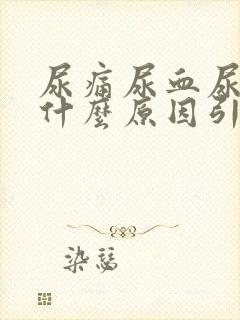 尿痛尿血尿
什麼原因引
染瑟